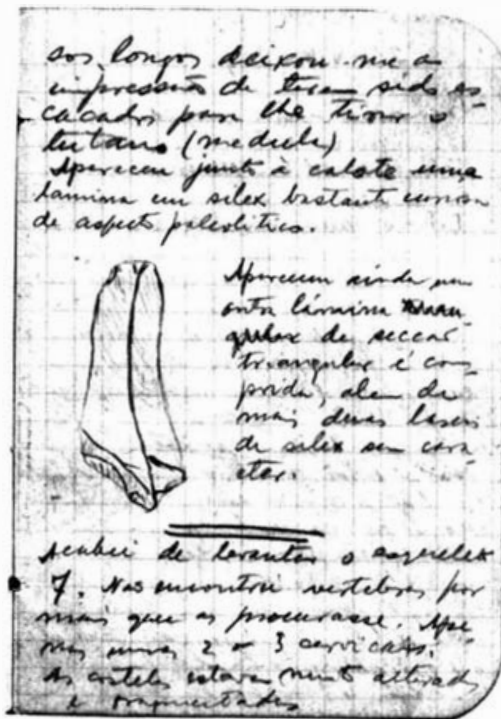 sos longos deixou-me a
impressão de terem sido es-
cacados para lhe tirar o
tutano (medula)
Apareceu junto à calote uma
lamina em silex bastante
de aspecto paleolitico.
Apareceu ainda um
outra lâmina
de seccar
triangular é com-
prida, alem de
mais duas lascas
de silex sem cará-
cter.
Acabei de levantar o esqueleto
7. Nas encontrei vertebras por
mais que as procurasse. Ape-
nas umas 2 a 3 cervicais.
As costelas estavam muito alteradas
e fragmentadas